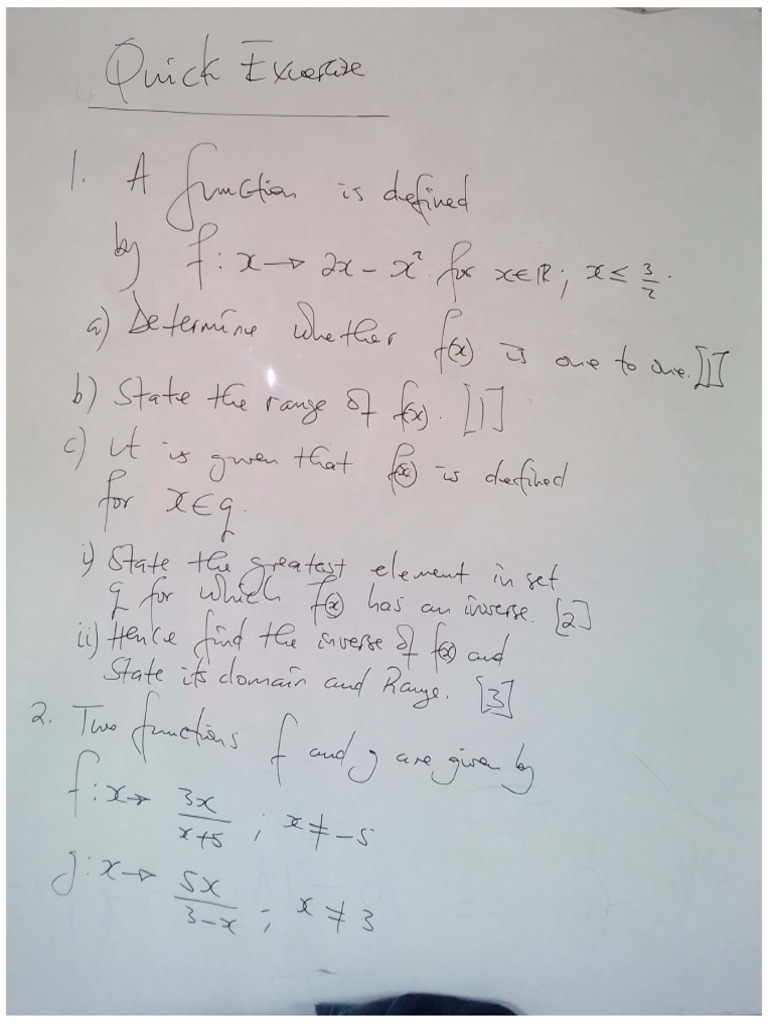 Quick Excercise
1. A function is defined
by f : x → 2x - x² for x ∈ ℝ; x ≤ 3/2.
a) Determine whether f(x) is one to one. [1]
b) State the range of f(x). [1]
c) it is given that f(x) is defined
for x ∈ q.
i) State the greatest element in set
q for which f(x) has an inverse. [2]
ii) Hence find the inverse of f(x) and
State its domain and Range. [3]
2. Two functions f and g are given by
f : x → 3x/(x+5) ; x ≠ -5
g : x → 5x/(3-x) ; x ≠ 3